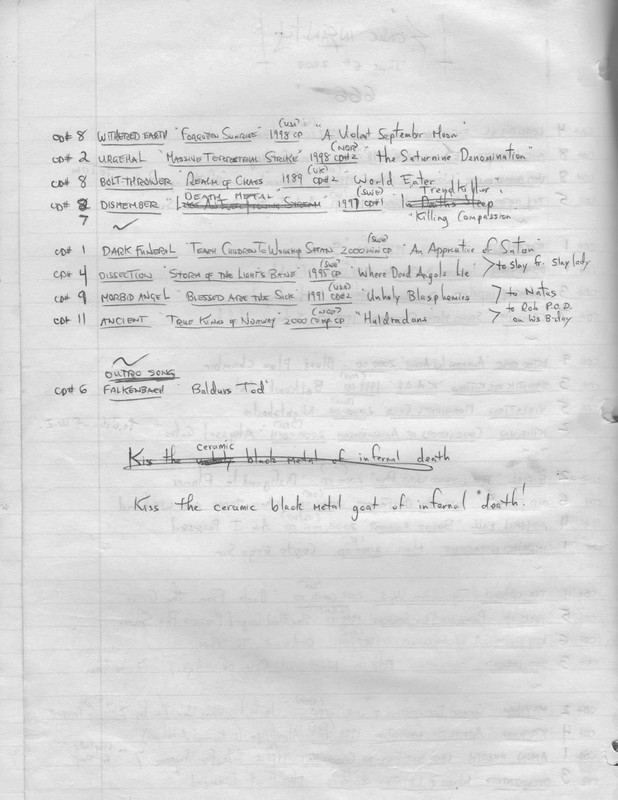 CD# 8 WITHERED EARTH "FORGOTTEN SUNRISE" 1998 CD (USA) "A Violent September Moon"
CD# 2 URGEHAL "MASSIVE TERRESTRIAL STRIKE" 1998 CD#2 (NOR) "the Saturnine Denomination"
CD# 8 BOLT-THROWER "REALM OF CHAOS" 1989 CD#2 (UK) "World Eater"
CD# 8 DISMEMBER "DEATH METAL" 1997 CD#1 (SWE) Trendkiller,
7 "Killing Compassion
CD# 1 DARK FUNERAL "TEACH CHILDREN TO WORSHIP SATAN" 2000 MINI CD (SWE) "An Apprentice of Satan"
CD# 4 DISSECTION "STORM OF THE LIGHT'S BANE" 1995 CD (SWE) "Where Dead Angels Lie" > to Slay fr. Slay lady
CD# 9 MORBID ANGEL "BLESSED ARE THE SICK" 1991 CD#2 (USA) "Unholy Blasphemies > to Natus
CD# 11 ANCIENT "TRUE KINGS OF NORWAY" 2000 COMP CD (NOR) "Huldradans > to Rob P.O.D. on his B-day
OUTRO SONG
CD# 6 FALKENBACH "Baldurs Tod"
Kiss the ceramic black metal of infernal death
Kiss the ceramic black metal goat of infernal death!